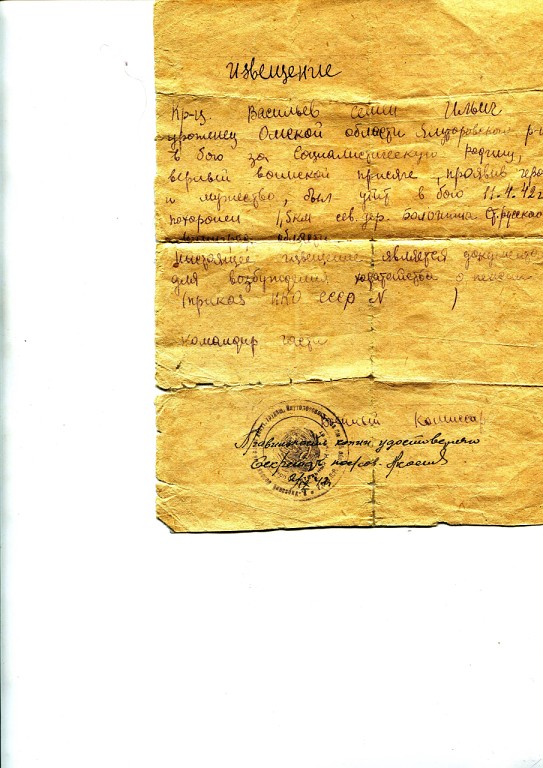 извещение
Кр-ц. Васильев Семен Ильич
уроженец Омской области Ялуторовского р-н
в бою за социалистическую Родину,
верный воинской присяге, проявив геро
и мужество, был убит в бою 11.4.42г
похоронен 1,5км сев. дер. Ст. русская
области
Настоящее извещение является документо
для возбуждения ходатайства о пенсии
(приказ НКО СССР N )
Командир части
Военный Комиссар
Правильность копии удостоверяю
Секретарь